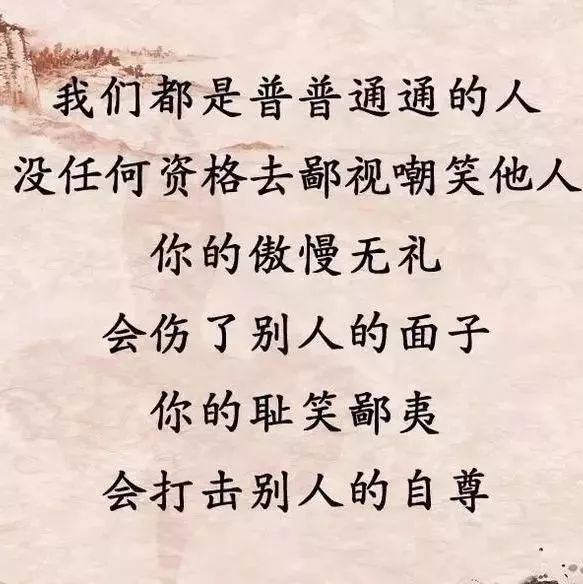 我们都是普普通通的人
没任何资格去鄙视嘲笑他人
你的傲慢无礼
会伤了别人的面子
你的耻笑鄙夷
会打击别人的自尊